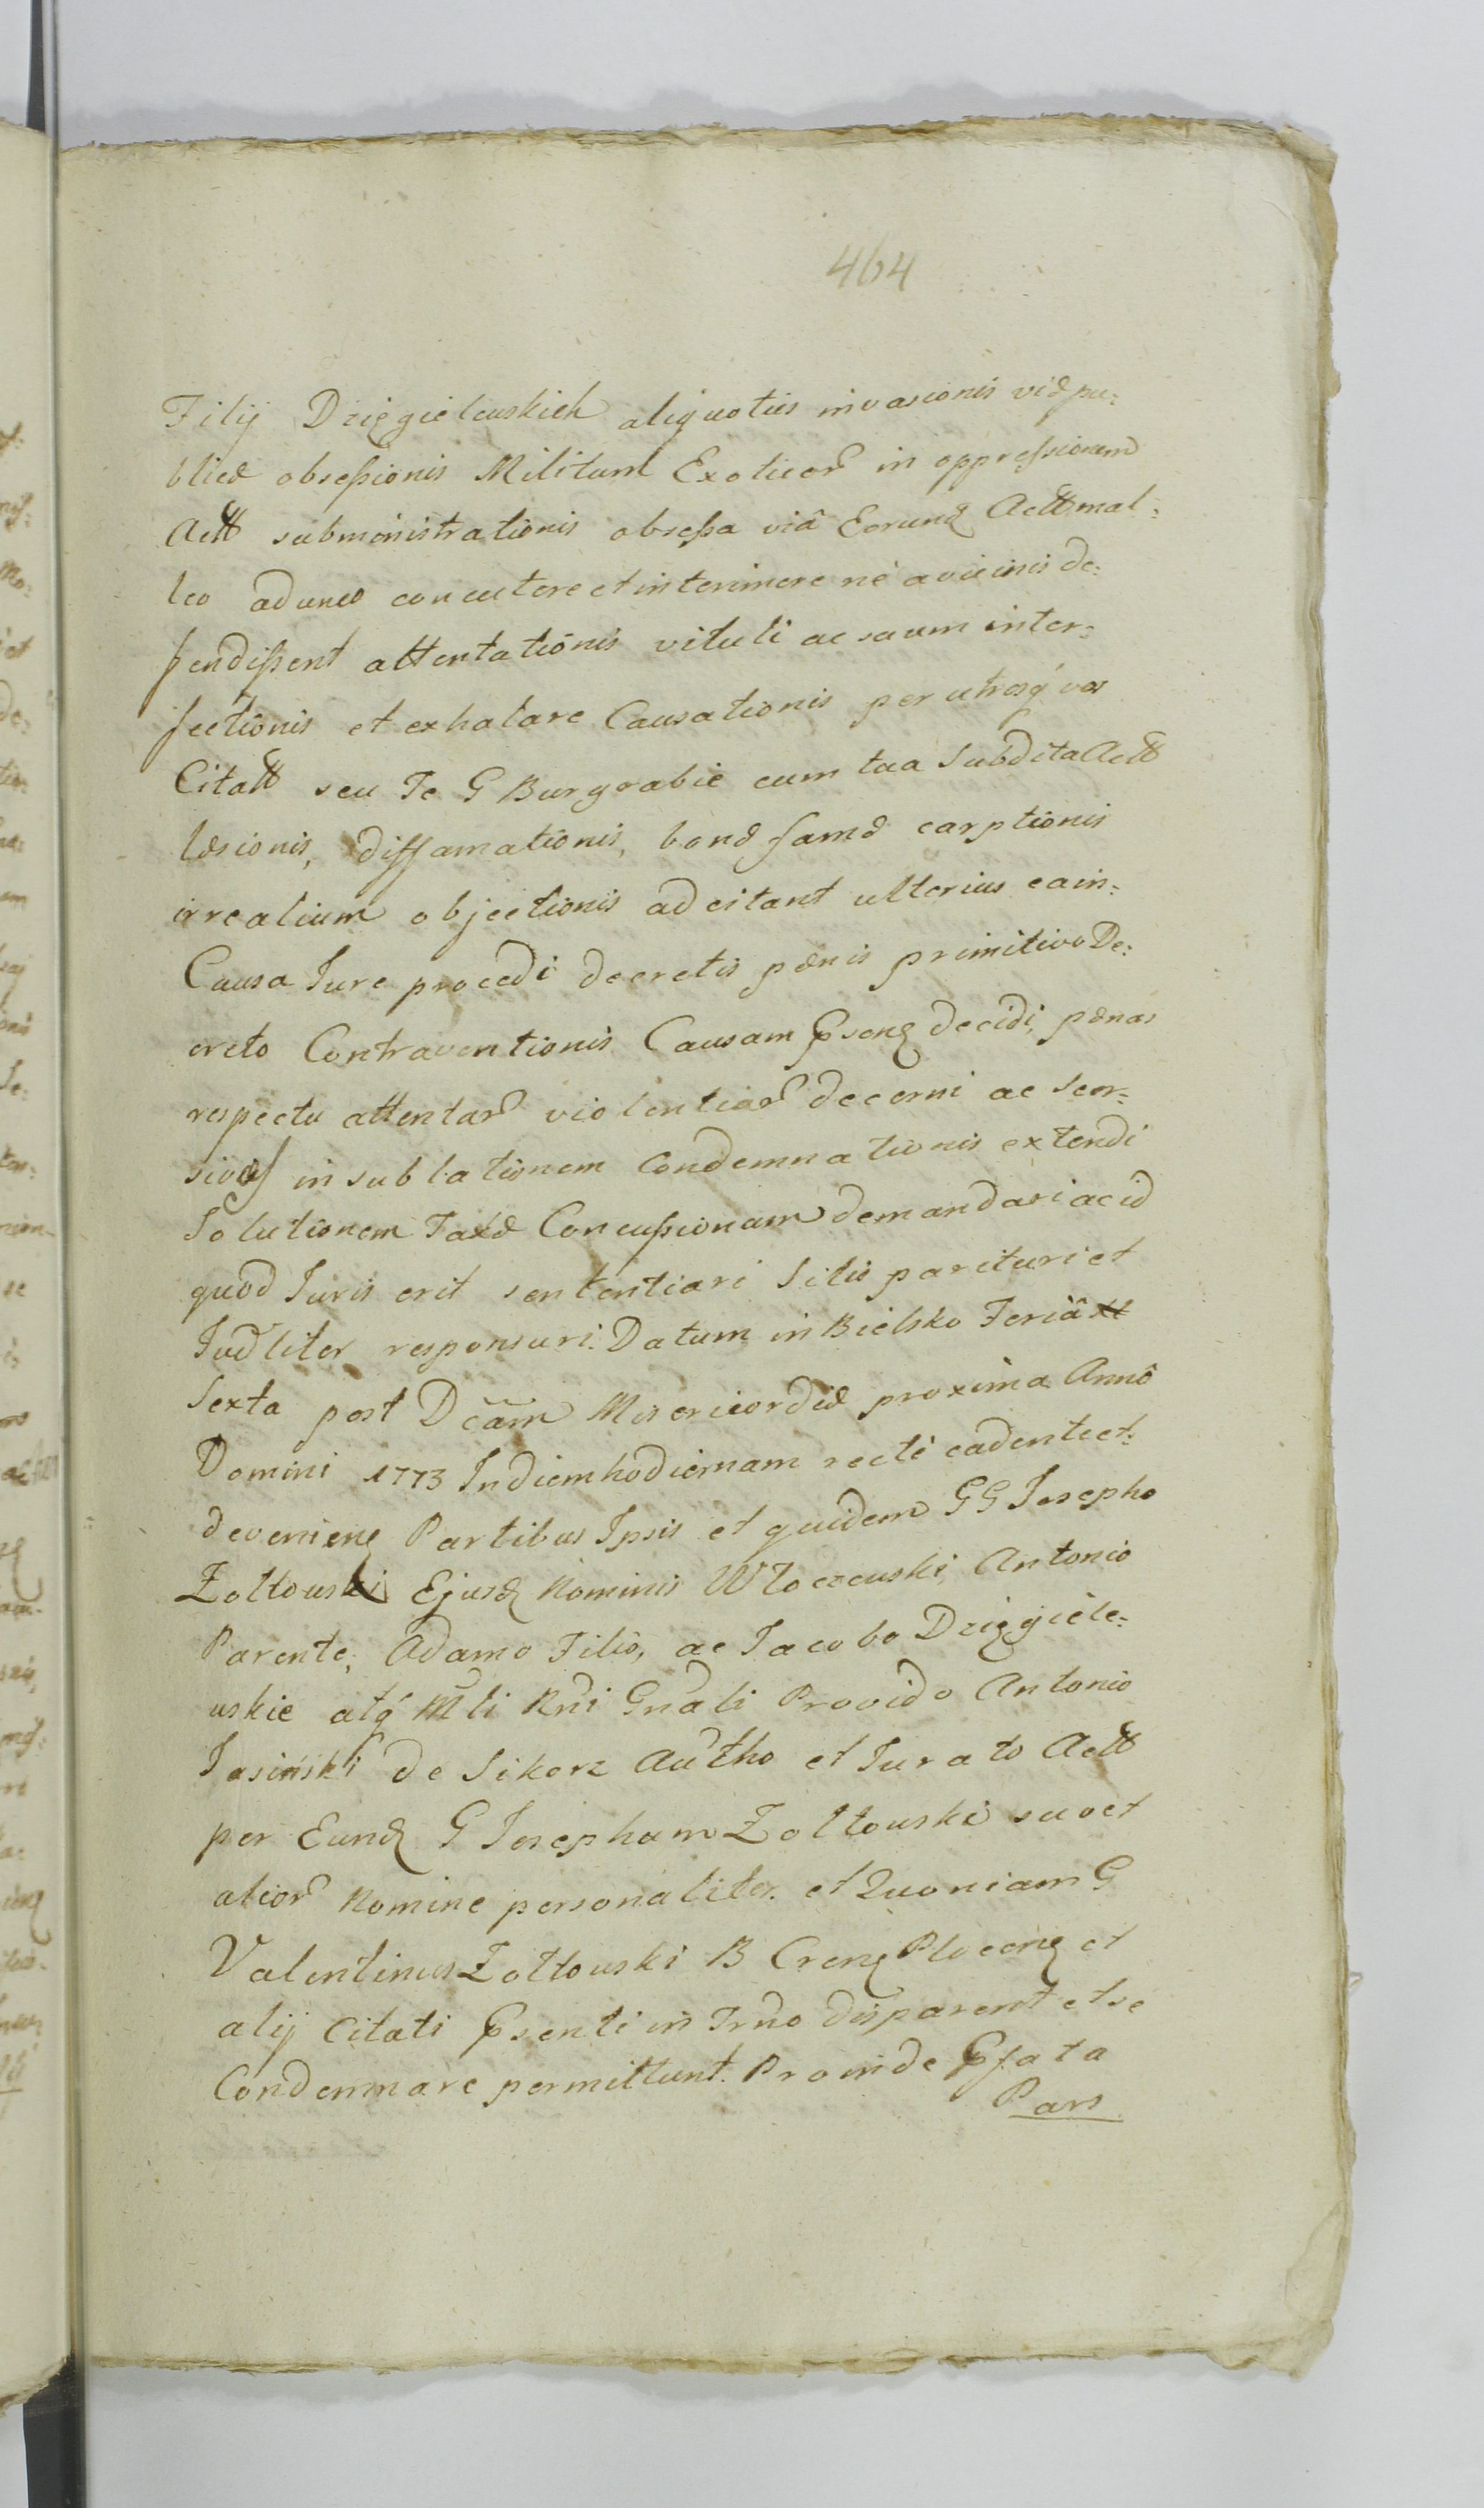 464
Filij Dzięgielewskich aliquoties invasionis viæ pu:
blicæ obseßionis Militum Exoticor in oppreßionem
Actt subministrationis obseßa viâ Eorund Actt mal:
leo adunco concutere et interimere nè a vicinis de:
fendißent attentationis vituli ac saum inter:
fectionis et exhalare Causationis per utrosq vos
Citatt seu Te G Burgrabie cum tua Subdita Actt
læsionis, diffamationis, bonæ famæ carptionis
irrealium objectionis adcitant ulterius ea in:
Causa Jure procedi decretis pænis primitivo De:
creto Contraventionis Causam Psen decidi, pænas
respectu attentar violentiar decerni ac Seor:
sivas in sublationem Condemnationis extendi
Solutionem Taxæ Concußionum demandari ac id
quod Juris erit sententiari Sitis parituri et
Judliter responsuri. Datum in Bielsko Feriâ
Sexta post Dcam Misericordiæ proxima Annô
Domini 1773 In diem hodiernam rectè cadente et:
devenien Partibus Ipsis et quidem GG Josepho
Żołtowski Ejusd Nominis Włoczewski, Antonio
Parente, Adamo Filiô, ac Jacobo Dzięgiele:
wskie atq Mli Rni Gnali Provido Antonio
Jasiński de Sikorz Autho et Jurato Actt
per Eund G Josephum Żołtowski suo et
alior Nomine personaliter. et Quoniam G
Valentinus Żołtowski B Cren Plocen et
alij Citati Psenti in Trno disparent et se
Condemnare permittunt. Proinde Pfata
Pars